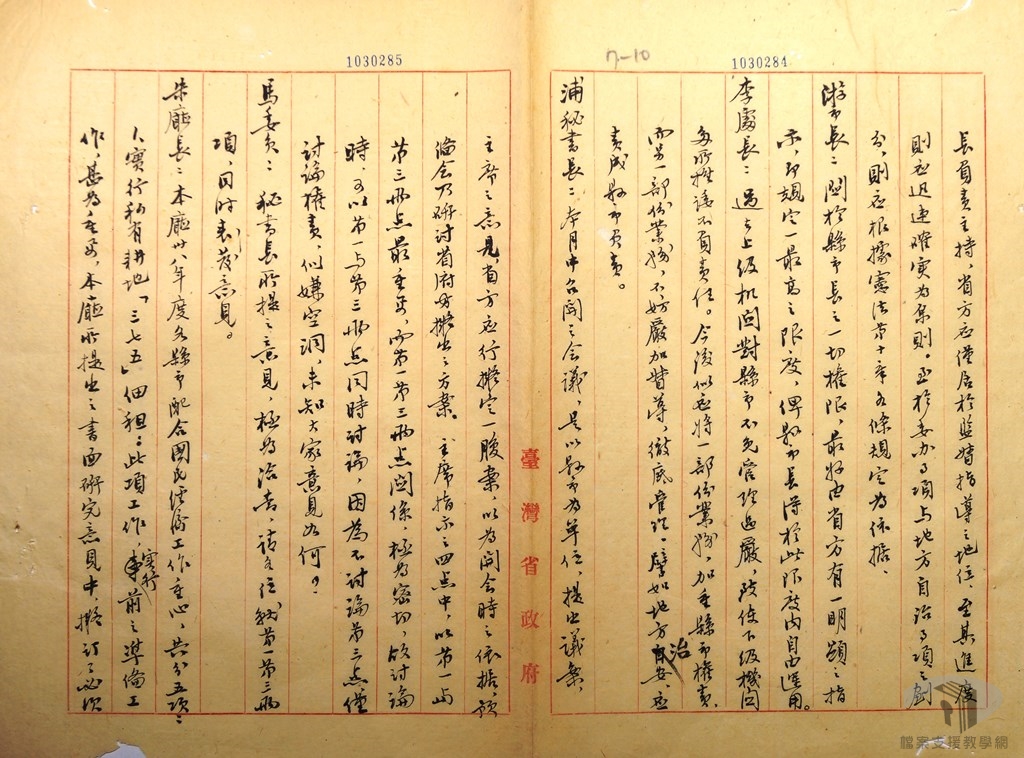 1030284
7-10
長負責主持，省方應僅居於監督指導之地位，至其進度
則應迅速確實為原則。至於委办事項与地方自治事項之劃
分，則應根據憲法第十章各條規定為依據。
游市長：關於縣市長之一切權限，最好由省方有一明顯之指
示，即規定一最高之限度，俾縣市長得於此限度內自由運用。
李處長：過去上級机関對縣市不免管理過嚴，致使下級機関
多所推諉不負責任。今後似應將一部份業務，加重縣市權責，
而另一部份業務，不妨嚴加督導，徹底管理，譬如地方治安應
責成縣市負責。
浦秘書長：本月中召開之會議，是以縣市為單位，提出議案，
臺灣省政府
1030285
主席之意見，省方應行擬定一腹案，以為開會時之依據，預
備会乃研討省府所擬出之方案。主席指示之四点中，以第一与
第三兩点最重要，而第一第三兩点関係極為密切，故討論
時，可以第一与第三兩点同時討論，因為不討論第三点僅
討論權責，似嫌空洞，未知大家意見如何？
馬委員：秘書長所提之意見，極為洽當，請各位就第一第三兩
項，同時發表意見。
朱廳長：本廳卅八年度各縣市配合國民經濟工作重心，共分五項：
人實行私有耕地「三七五」佃租：此項工作，實行前之準備工
作，甚為重要，本廳所提出之書面研究意見中，擬訂了必須
檔案支援教學網